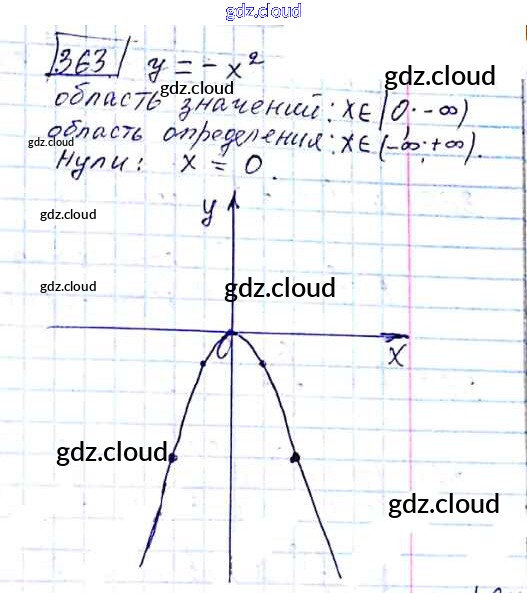 gdz.cloud
363 y = -x²
gdz.cloud
gdz.cloud
область значений: x∈[0; -∞)
gdz.cloud
область определения: x∈(-∞; +∞).
Нули: x = 0.
y
gdz.cloud
gdz.cloud
gdz.cloud
0
x
gdz.cloud
gdz.cloud